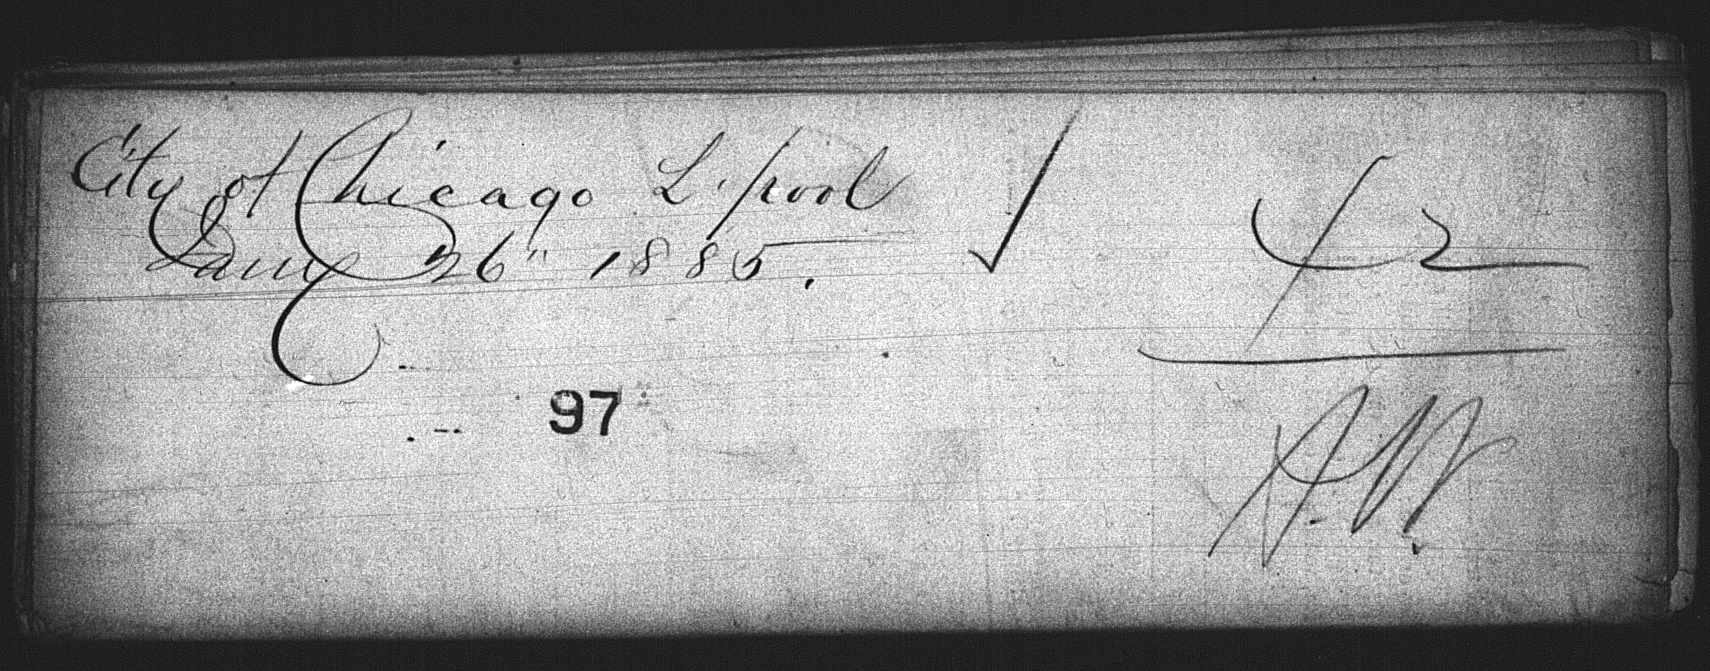 City of Chicago L'pool
Jany 26" 1885.
42
97
A.W.